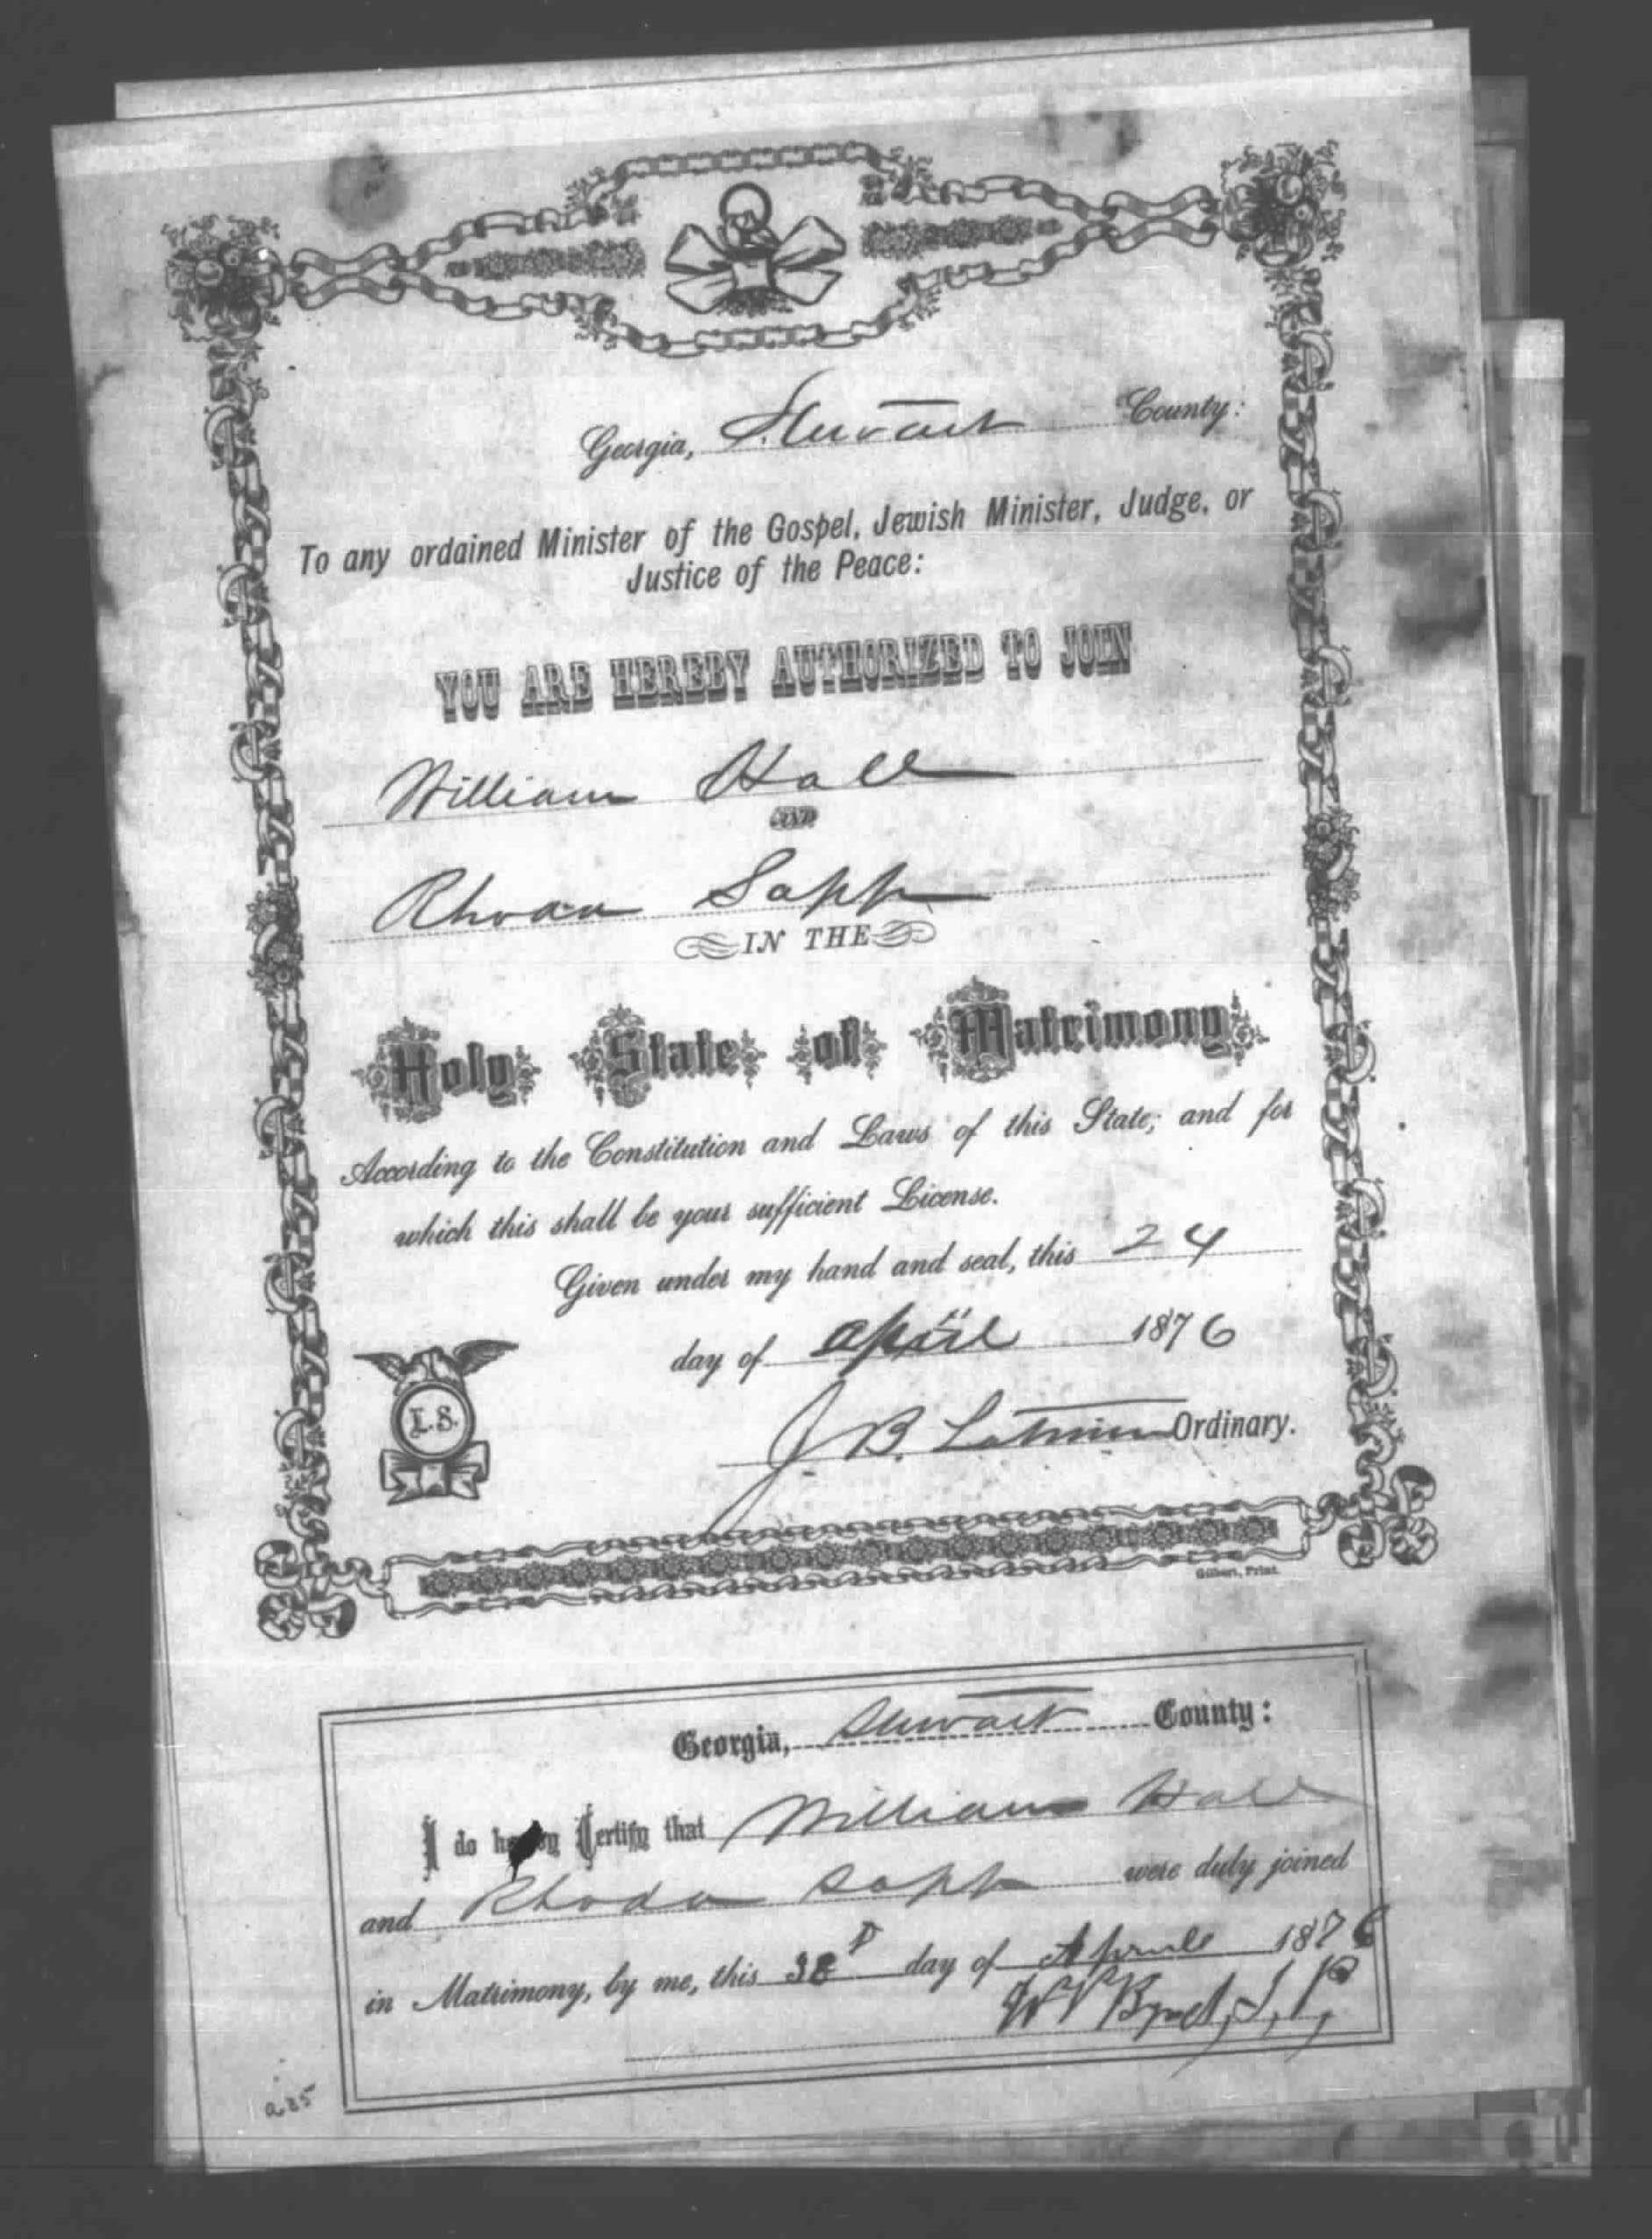 Georgia, Stewart County:
To any ordained Minister of the Gospel, Jewish Minister, Judge, or
Justice of the Peace:
YOU ARE HEREBY AUTHORIZED TO JOIN
William Hall
AND
Rhoda Sapp
IN THE
Holy State of Matrimony
According to the Constitution and Laws of this State; and for
which this shall be your sufficient License.
Given under my hand and seal, this 24
day of April 1876
L.S.
J. B. Latimer Ordinary.
Gilbert, Print.
Georgia, Stewart County:
I do hereby Certify that William Hall
and Rhoda Sapp were duly joined
in Matrimony, by me, this day of Aprile 1876
W V Byrd, J, P,